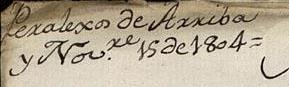 Peralexos de Arriba
y Nov.re 15 de 1804=